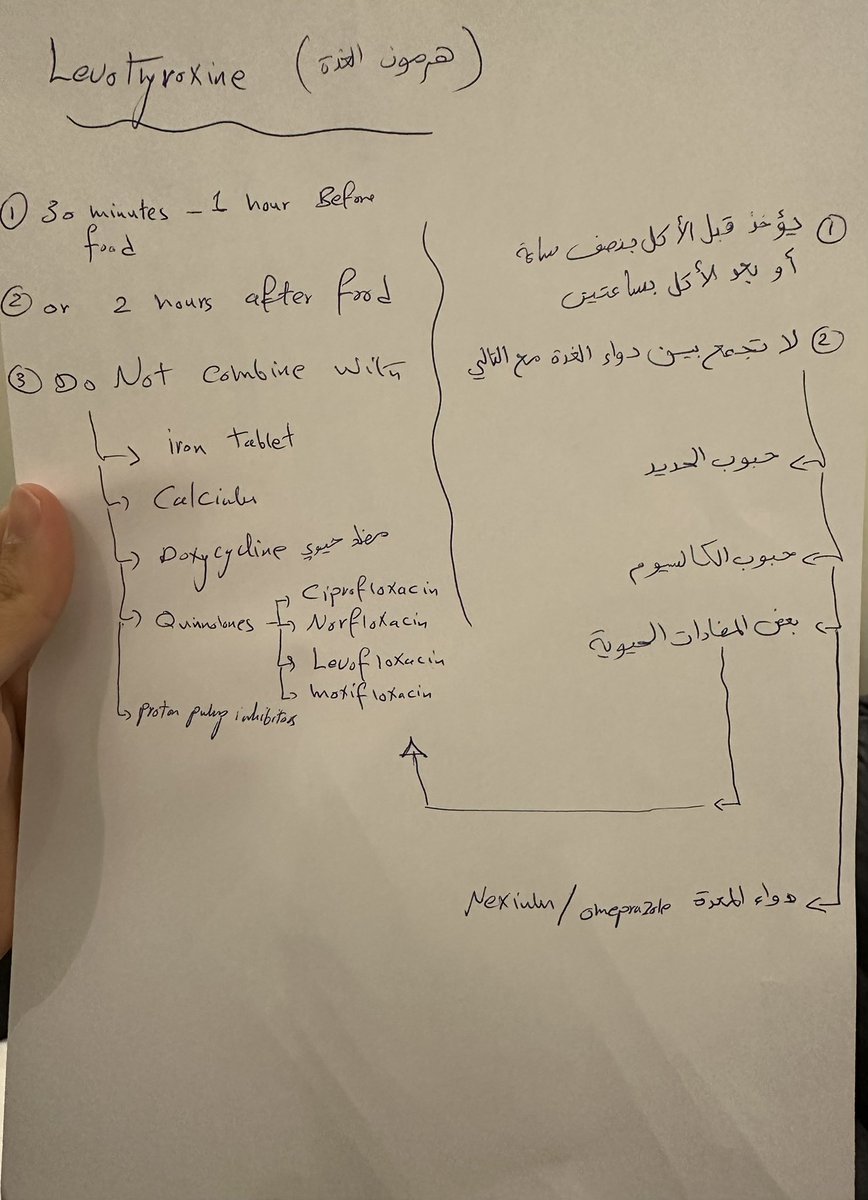 Levothyroxine (هرمون الغدة)
① 30 minutes - 1 hour Before
food
② or 2 hours after food
③ Do Not combine with
iron tablet
Calcium
Doxycycline مضاد حيوي
Quinolones
Ciprofloxacin
Norfloxacin
Levofloxacin
moxifloxacin
proton pump inhibitors
① يؤخذ قبل الأكل بنصف ساعة
أو بعد الأكل بساعتين
② لا تجمع بين دواء الغدة مع التالي
حبوب الحديد
حبوب الكالسيوم
بعض المضادات الحيوية
دواء المعدة Nexium / omeprazole